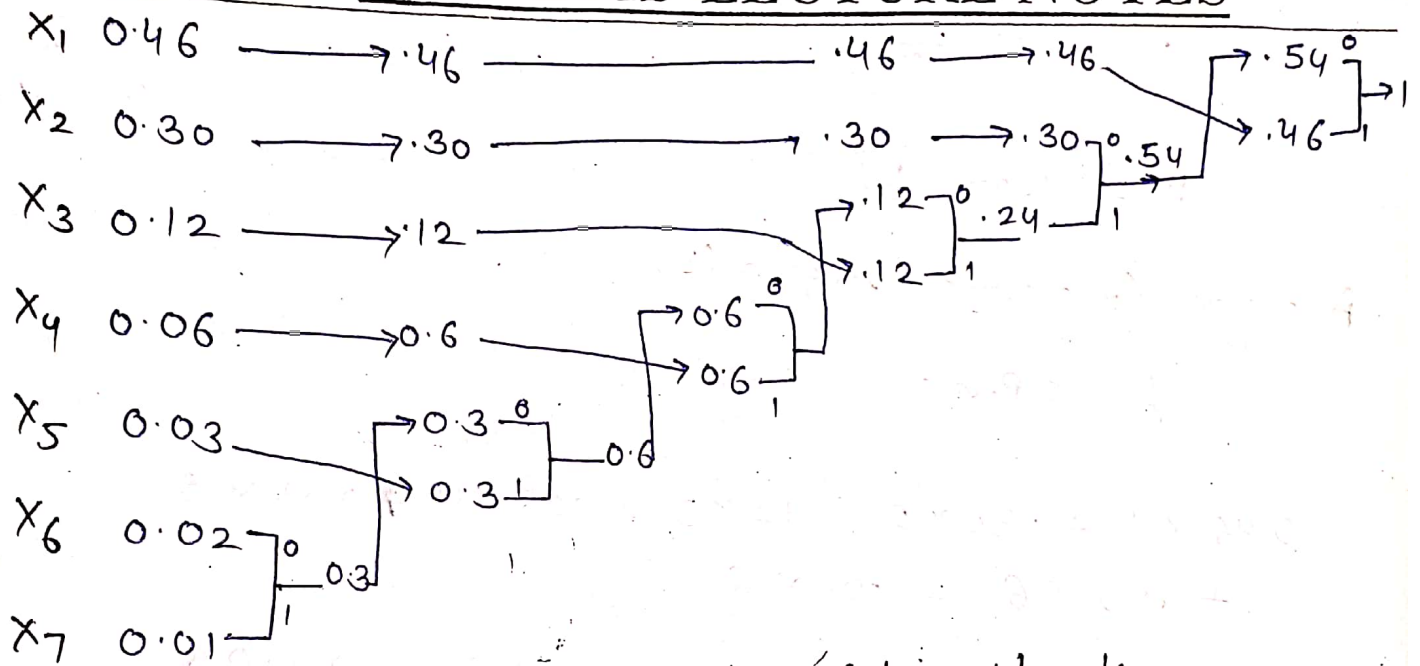 LECTURE NOTES
X1 0.46 .46 .46 .46 .54 0 1
X2 0.30 .30 .30 .30 0 .54 .46 1
X3 0.12 .12 .12 0 .24 1
.12 1
X4 0.06 0.6 0.6 0
0.6 1
X5 0.03 0.3 0 0.6
0.3 1
X6 0.02 0 0.3
X7 0.01 1